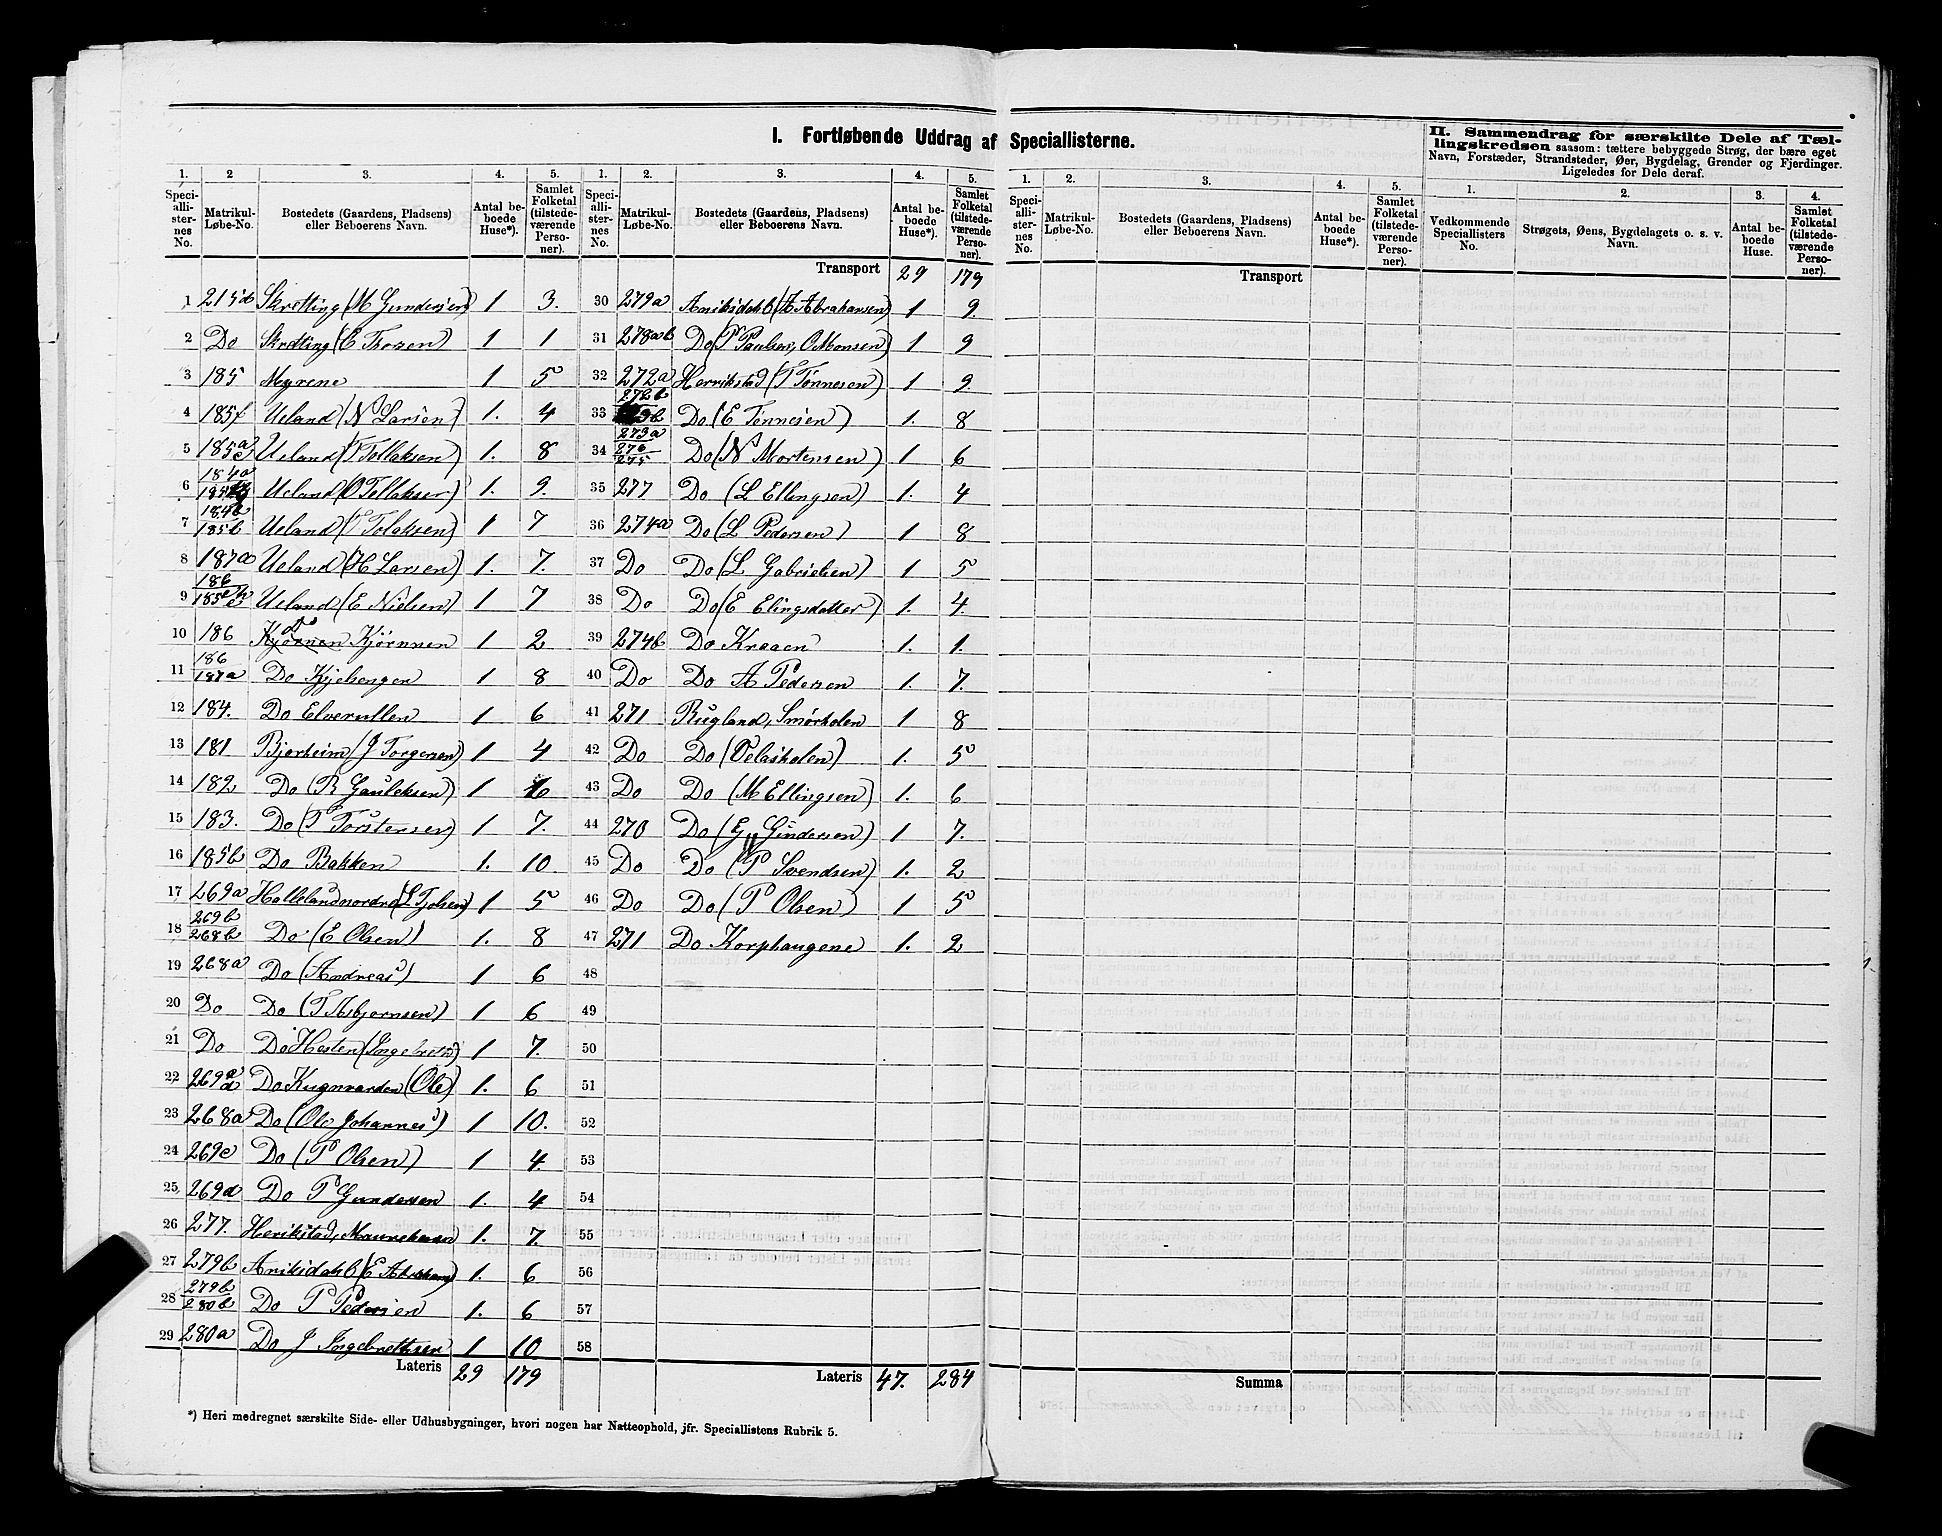 I. Fortløbende Uddrag af Speciallisterne.
II. Sammendrag for særskilte Dele af Tæl-
lingskredsen saasom: tættere bebyggede Strøg, der bære eget
Navn, Forstæder, Strandsteder, Øer, Bygdelag, Grender og Fjerdinger.
Ligeledes for Dele deraf.
1. 2 3. 4. 5. 1. 2. 3. 4. 5.
Speciallisternes No. Matrikul-Løbe-No. Bostedets (Gaardens, Pladsens) eller Beboerens Navn. Antal beboede Huse*). Samlet Folketal (tilstedeværende Personer).
Speciallisternes No. Matrikul-Løbe-No. Bostedets (Gaardens, Pladsens) eller Beboerens Navn. Antal beboede Huse*). Samlet Folketal (tilstedeværende Personer).
1 215b Skretting (M Gundersen) 1 3.
2 Do Skretting (E Thorsen) 1 1
3 185 Myrene 1 5
4 185f Ueland (N Larsen) 1. 4
5 185 a e Ueland (T Tollaksen) 1. 8
6 184a Ueland (O Tollaksen) 1. 9.
7 184b 185b Ueland (T Tolaksen) 1 7
8 187a Ueland (H Larsen) 1. 7.
9 186 185 Ueland (E Nielsen) 1 7
10 186 Do Kjørnnen 1 2
11 186 187a Do Kjelsengen 1 8
12 184. Do Elverullen 1 6
13 181 Bjorheim (J Torgersen) 1 4
14 182 Do (R Gauleksen) 1 6
15 183. Do (T Torstensen) 1 7.
16 185b Do Bakken 1. 10
17 269a Hallelandnordre (L Tjolsen) 1 5
18 269b 268b Do (E Olsen) 1. 8
19 268a Do (Andreas) 1 6
20 Do Do (T Asbjornsen) 1 6
21 Do Do Hesten (Ingebret) 1 7.
22 269 Do (Ole) 1. 6
23 268a Do (Ole Johannes) 1 10.
24 269c Do (P Olsen) 1 4.
25 269d Do P Gundersen 1. 4
26 277. Herikstad, 1. 7.
27 279b Aniksdahl (E Abraham) 1. 6
28 279b 280b Do P Pedersen 1. 6
29 280a Do J Ingebrethsen 1 10
Lateris 29 179
Transport 29 179
30 279a Aniksdahl (A Abrahamsen) 1 9.
31 278ab Do (P Paulsen, O Monsen) 1 9
32 272a Herrikstad (T Tønnesen) 1 9.
33 272b Do (E Tønnesen) 1. 8
34 273a 276 275 Do (N Mortensen) 1 6
35 277 Do (L Ellingsen) 1. 4
36 274a Do (L Pedersen) 1 8
37 Do Do (L Gabrielsen) 1 5
38 Do Do (E Elingsdatter) 1. 4.
39 274b Do Kraaen 1. 1.
40 Do Do A Pedersen 1. 7.
41 271 Rugland, Smørholen 1 8
42 Do Do (Pelasholen) 1. 5
43 Do Do (M Ellingsen) 1. 6
44 270 Do (G Gundersen) 1 7.
45 Do Do (P Svendsen) 1. 2
46 Do Do (P Olsen) 1 5
47 271 Do Korphaugene 1. 2
48
49
50
51
52
53
54
55
56
57
58
Lateris 47. 284
*) Heri medregnet særskilte Side- eller Udhusbygninger, hvori nogen har Natteophold, jfr. Speciallistens Rubrik 5.
1. 2. 3. 4. 5.
Speciallisternes No. Matrikul-Løbe-No. Bostedets (Gaardens, Pladsens) eller Beboerens Navn. Antal beboede Huse*). Samlet Folketal (tilstedeværende Personer).
Transport
Summa
1. 2. 3. 4.
Vedkommende Speciallisters No. Strøgets, Øens, Bygdelagets o. s. v. Navn. Antal beboede Huse. Samlet Folketal (tilstedeværende Personer).